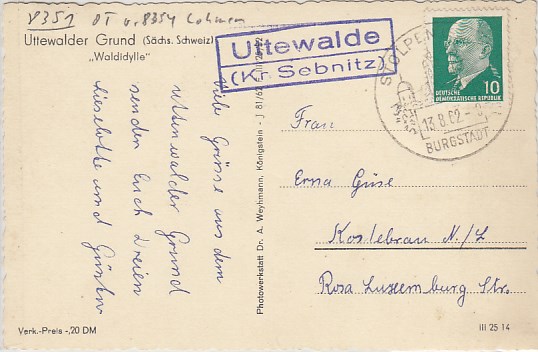 8351 OT v. 8354 Lohmen
Uttewalder Grund (Sächs. Schweiz)
„Waldidylle"
Uttewalde
(Kr. Sebnitz)
STOLPEN
13.8.62
BURGSTADT
DEUTSCHE
DEMOKRATISCHE REPUBLIK
10
viele Grüsse aus dem
Uttenwalder Grund
senden Euch dreien
Lieselotte und Günter
Photowerkstatt Dr. A. Weyhmann, Königstein - J 81/62
Frau
Erna Güse
Kostebrau N./L
Rosa Luxemburg Str.
Verk.-Preis -,20 DM
III 25 14